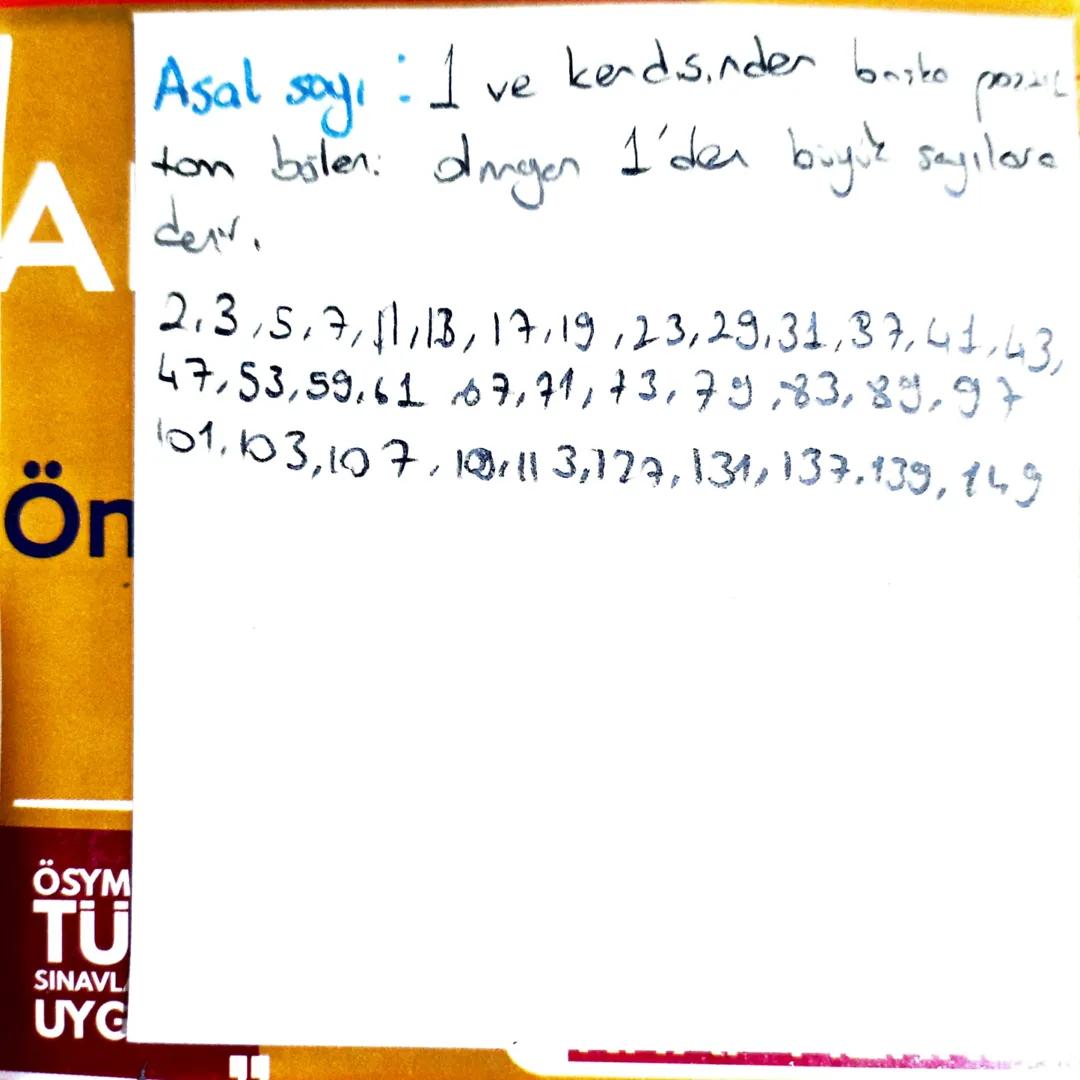 Asal sayı : 1 ve kendisinden başka pozitif
tam böleni olmayan 1'den büyük sayılara
denir.
2,3,5,7,11,13,17,19,23,29,31,37,41,43,
47,53,59,61 67,71,73,79,83,89,97
101,103,107,109,113,127,131,137,139,149
A
Ön
ÖSYM
TÜ
SINAVL
UYG